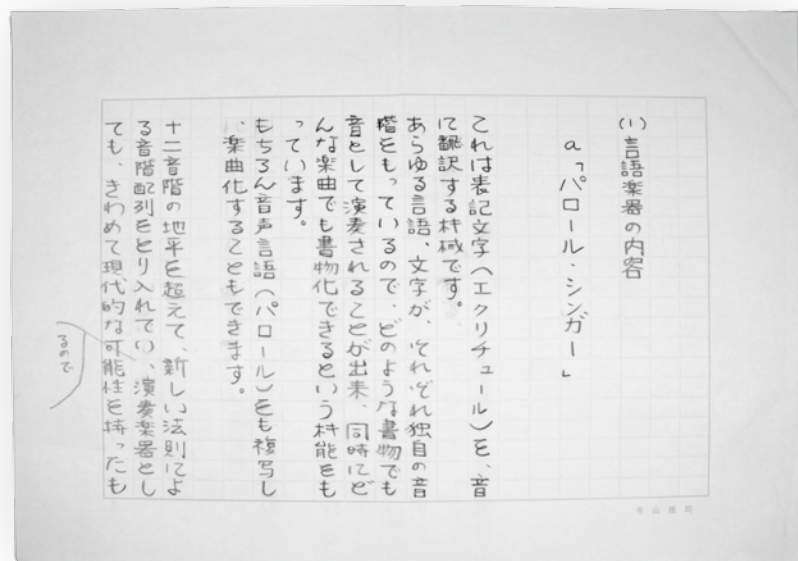 (1)言語楽器の内容
a「パロール・シンガー」
これは表記文字(エクリチュール)を、音
に翻訳する机械です。
あらゆる言語、文字が、それぞれ独自の音
階をもっているので、どのような書物でも
音として演奏されることが出来、同時にど
んな楽曲でも書物化できるという机能をも
っています。
もちろん音声言語(パロール)をも複写し
、楽曲化することもできます。
十二音階の地平を超えて、新しい法則によ
る音階配列をとり入れてい、演奏楽器とし
ても、きわめて現代的な可能性を持ったも
るので
寺山修司